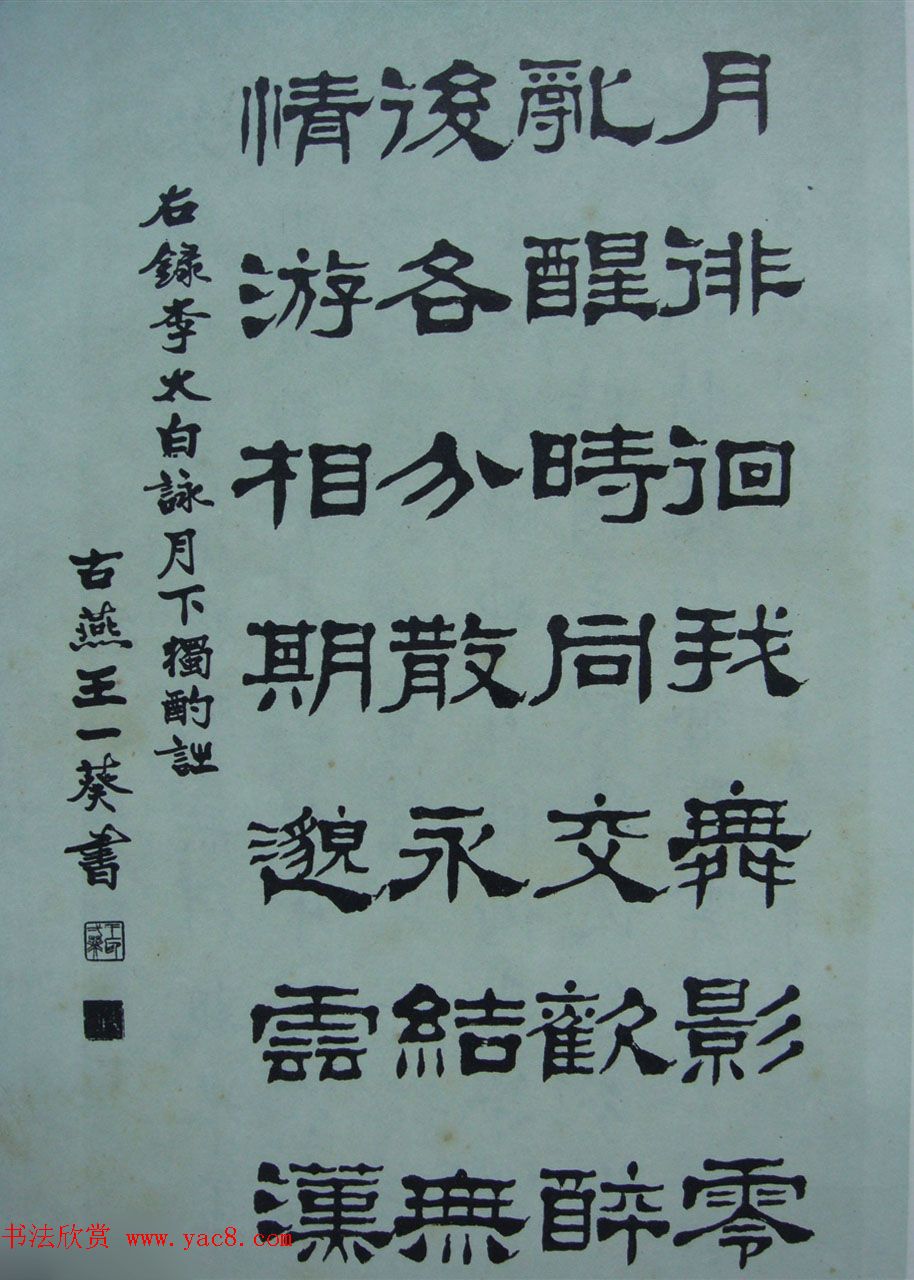 月徘徊我舞影零
亂醒時同交歡醉
後各分散永結無
情游相期邈雲漢
右錄李太白詠月下獨酌詩
古燕王一葵書
书法欣赏 www.yac8.com